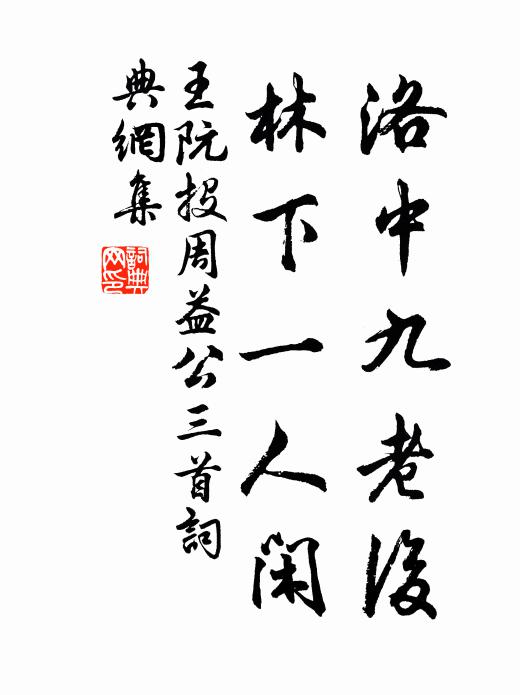 洛中九老後
林下一人閑
王阮投周益公三首詞
典網集
詞典網印